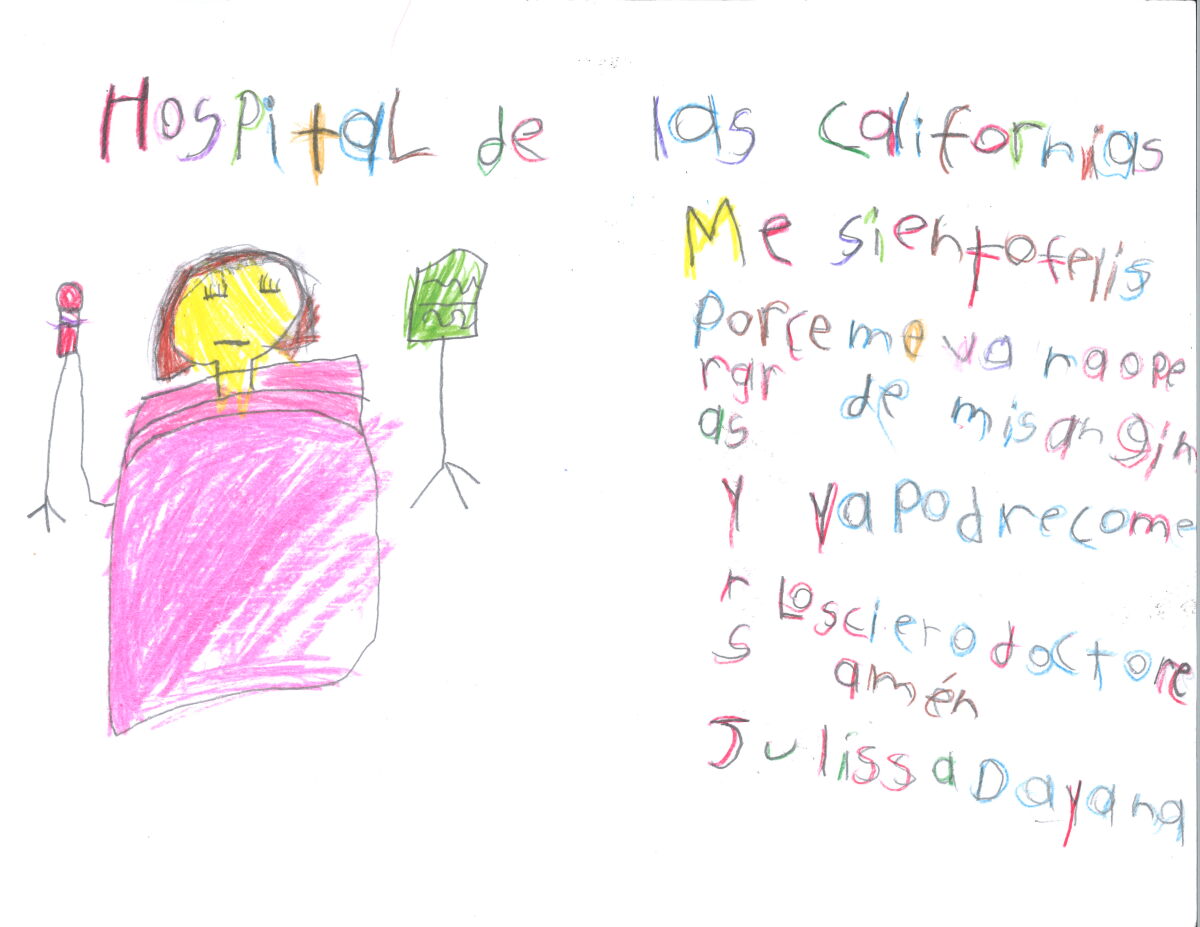 Hospital de las californias
Me siento felis
porce me va naope
rar de misangin
as
y ya podre come
r Los ciero doctore
s amén
Julissa Dayana